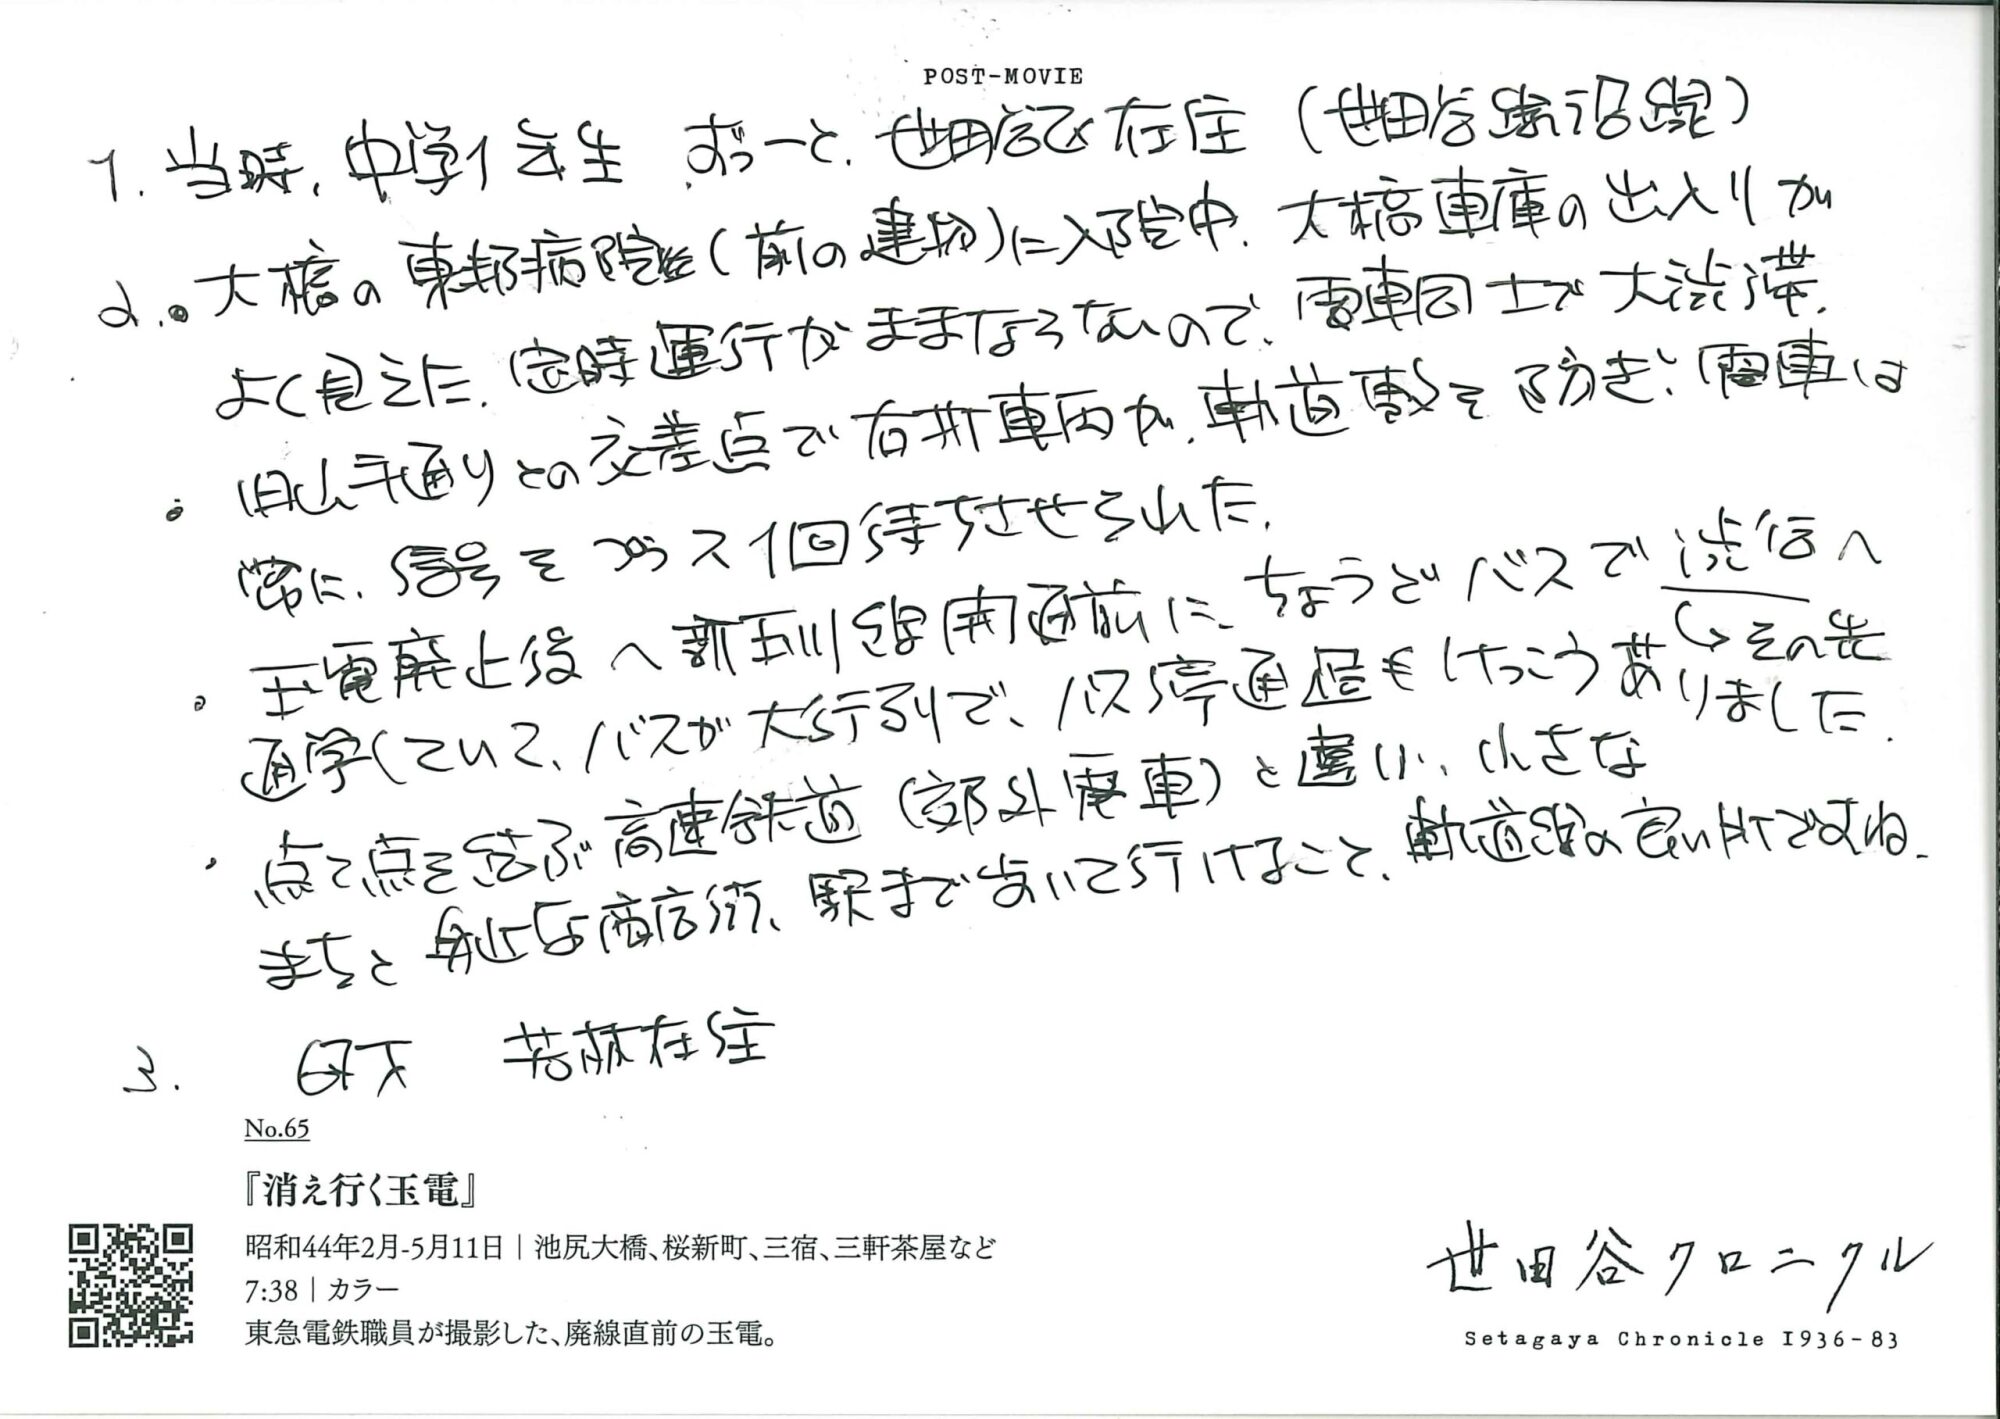 POST-MOVIE
1. 当時、中学1年生 ずっーと、世田谷区在住(世田谷線沿線)
2.・大橋の東邦病院(前の建物)に入院中、大橋車庫の出入りが
よく見えた。定時運行がままならないので、電車同士で大渋滞。
・旧山手通りとの交差点で右折車両が、軌道敷をふさぎ、電車は
常に、信号をプラス1回待ちさせられた。
・玉電廃止後〜新玉川線開通前に、ちょうどバスで渋谷へ
↳その先
通学していて、バスが大行列で、バス停通過もけっこうありました。
・点と点を結ぶ高速鉄道(郊外電車)と違い、小さな
まちと身近な商店街、駅まで歩いて行けること、軌道線の良い所ですね。
3. 若林在住
No.65
『消え行く玉電』
昭和44年2月-5月11日|池尻大橋、桜新町、三宿、三軒茶屋など
7:38|カラー
東急電鉄職員が撮影した、廃線直前の玉電。
世田谷クロニクル
Setagaya Chronicle 1936-83